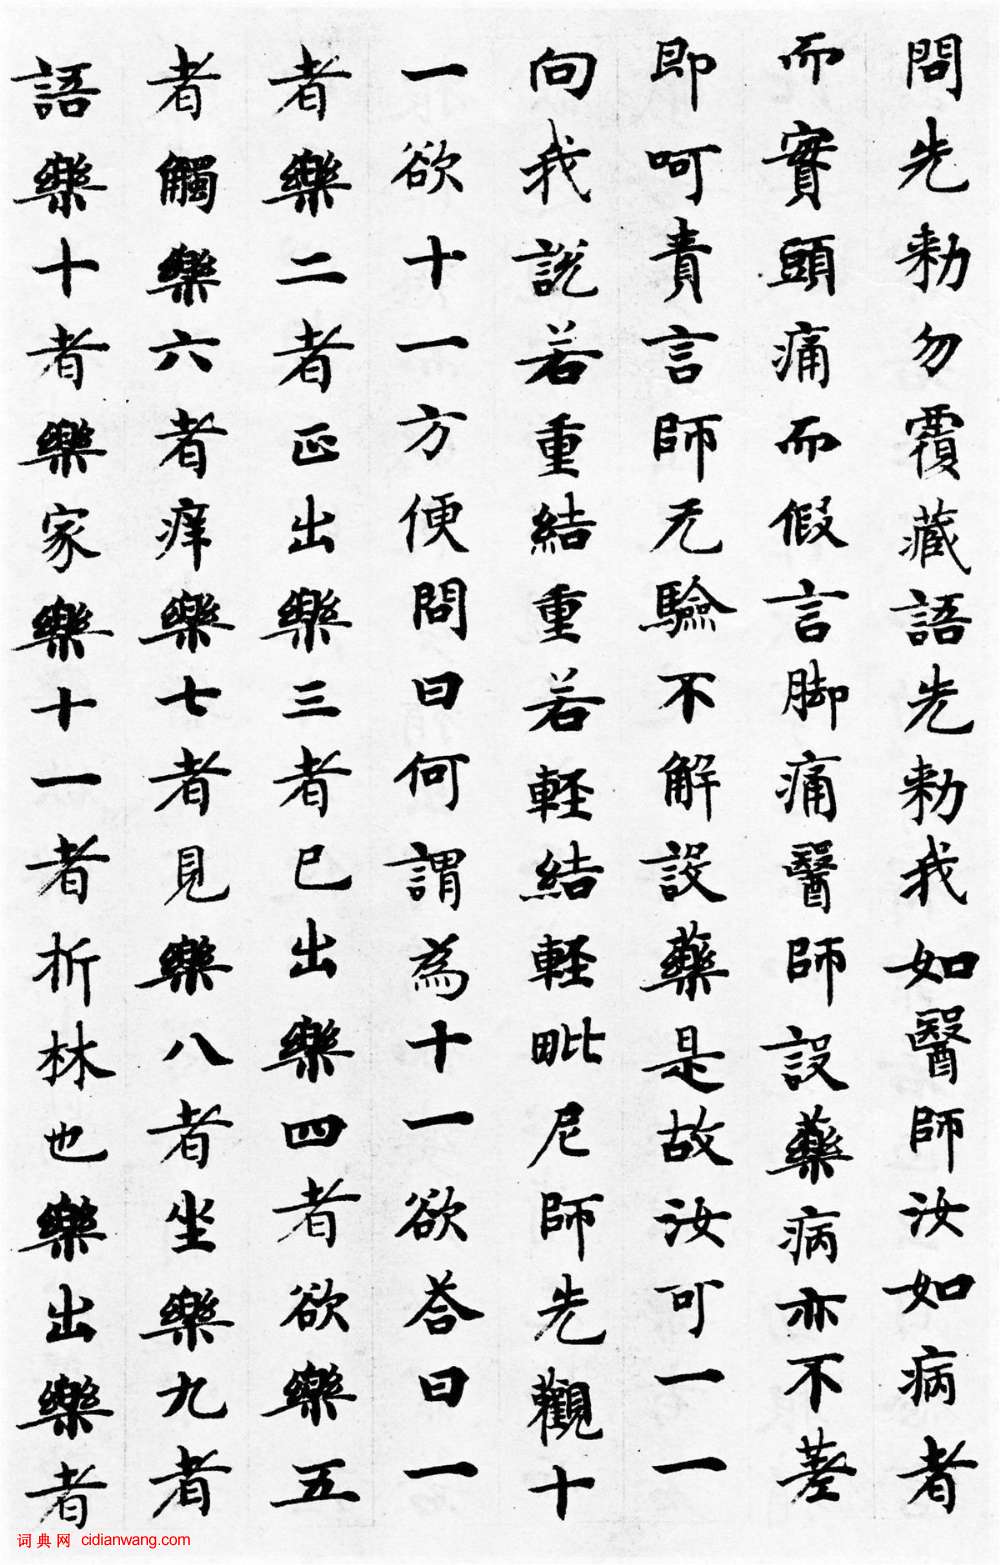 問先勑勿覆藏語先勑我如醫師汝如病者
而實頭痛而假言脚痛醫師設藥病亦不差
即呵責言師无驗不解設藥是故汝可一一
向我說若重結重若輕結輕毗尼師先觀十
一欲十一方便問曰何謂為十一欲荅曰一
者樂二者正出樂三者已出樂四者欲樂五
者觸樂六者痒樂七者見樂八者坐樂九者
語樂十者樂家樂十一者折林也樂出樂者
词典网 cidianwang.com